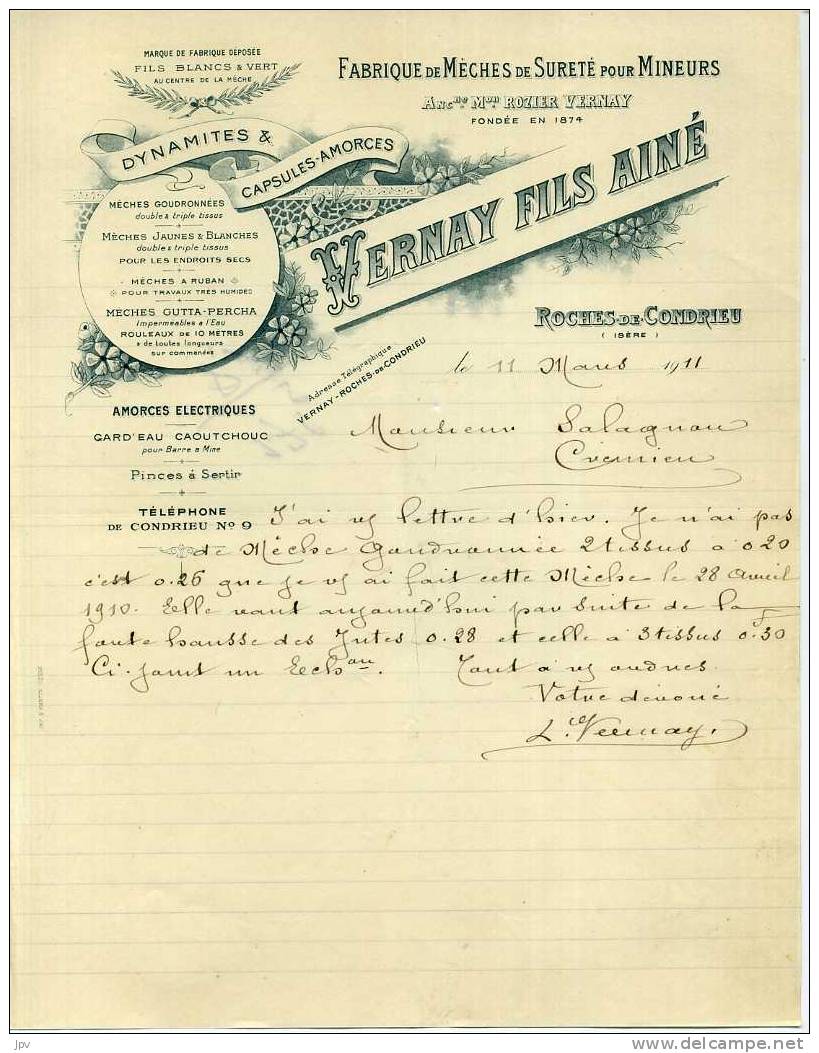 MARQUE DE FABRIQUE DÉPOSÉE
FILS BLANCS & VERT
AU CENTRE DE LA MÈCHE
FABRIQUE DE MÈCHES DE SURETÉ POUR MINEURS
ANCNE MON ROZIER VERNAY
FONDÉE EN 1874
DYNAMITES &
CAPSULES-AMORCES
VERNAY FILS AINÉ
MÈCHES GOUDRONNÉES
double & triple tissus
MÈCHES JAUNES & BLANCHES
double & triple tissus
POUR LES ENDROITS SECS
MÈCHES A RUBAN
POUR TRAVAUX TRÈS HUMIDES
MÈCHES GUTTA-PERCHA
Imperméables à l'Eau
ROULEAUX DE 10 METRES
& de toutes longueurs
sur commandes
ROCHES-DE-CONDRIEU
(ISÈRE)
Adresse Télégraphique
VERNAY-ROCHES-DE-CONDRIEU
le 11 Mars 1911
AMORCES ELECTRIQUES
GARD'EAU CAOUTCHOUC
pour Barre à Mine
Pinces à Sertir
TÉLÉPHONE
DE CONDRIEU No 9
Monsieur Salagnon
Crémieu
J'ai vs lettre d'hier. Je n'ai pas
de Mèche Goudronnée 2 tissus à 0.20
c'est 0.26 que je vs ai fait cette Mèche le 28 Avril
1910. Elle vaut aujourd'hui par suite de la
forte hausse des Jutes 0.28 et celle à 3 tissus 0.30
Ci-joint un Echon. Tout à vs ordres.
Votre dévoué
Vernay.
jpv
www.delcampe.net